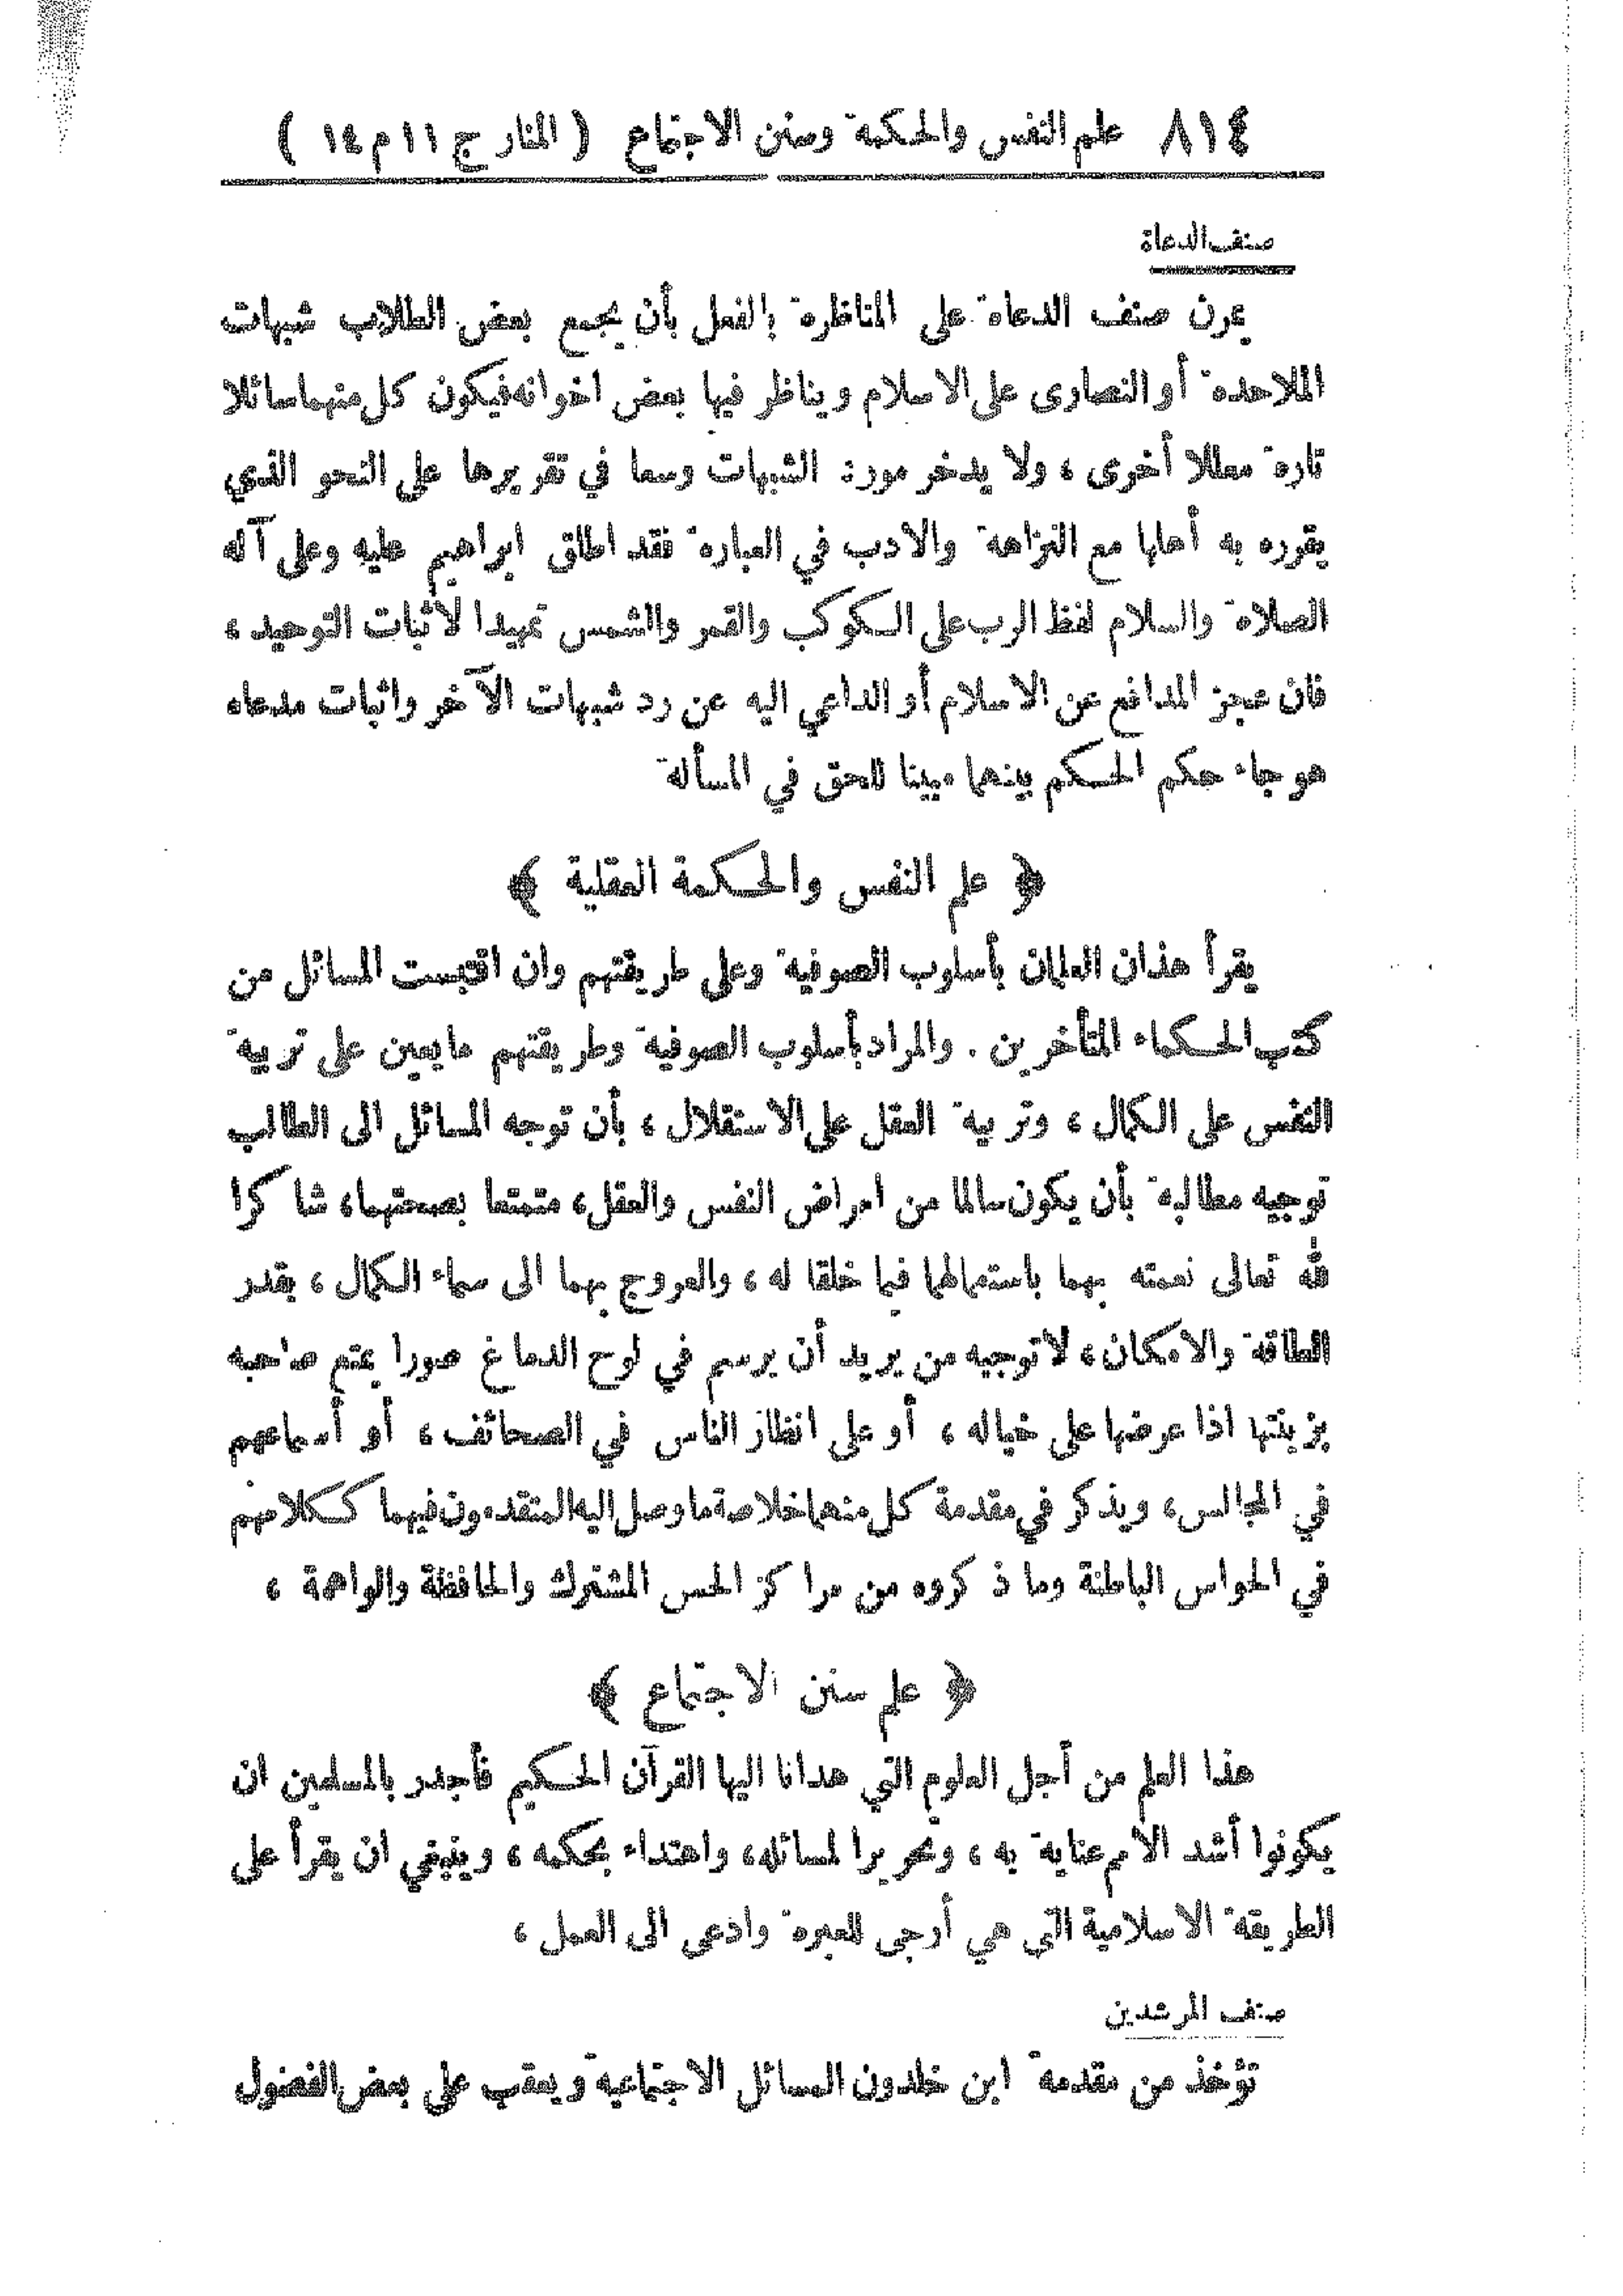 ٨١٤ علم النفس والحكمة وسنن الاجتماع ( المنار ج ١١ م ١٤ )
صنف الدعاة
يمرن صنف الدعاة على المناظرة بالفعل بأن يجمع بعض الطلاب شبهات
الملاحدة أو النصارى على الاسلام ويناظر فيها بعض اخوانه فيكون كل منهما سائلا
تارة معللا أخرى ، ولا يدخر مورد الشبهات وسعا في تقريرها على النحو الذي
يقرره به أهلها مع النزاهة والادب في العبارة فقد اطلق ابراهيم عليه وعلى آله
الصلاة والسلام لفظ الرب على الكوكب والقمر والشمس تمهيدا لأثبات التوحيد ،
فان عجز المدافع عن الاسلام أو الداعي اليه عن رد شبهات الآخر واثبات مدعاه
هو جاء حكم الحكم بينهما مبينا للحق في المسألة
﴿ علم النفس والحكمة العقلية ﴾
يقرأ هذان العلمان بأسلوب الصوفية وعلى طريقتهم وان اقتبست المسائل من
كتب الحكماء المتأخرين . والمراد بأسلوب الصوفية وطريقتهم ما يعين على تربية
النفس على الكمال ، وتربية العقل على الاستقلال ، بأن توجه المسائل الى الطالب
توجيه مطالبة بأن يكون سالما من امراض النفس والعقل ، متمتعا بصحتهما ، شاكرا
لله تعالى نعمته بهما باستعمالهما فيما خلقا له ، والعروج بهما الى سماء الكمال ، بقدر
الطاقة والامكان ، لا توجيه من يريد أن يرسم في لوح الدماغ صورا يتمتع صاحبه
بزينتها اذا عرضها على خياله ، أو على انظار الناس في الصحائف ، أو أسماعهم
في المجالس ، ويذكر في مقدمة كل منهما خلاصة ما وصل اليه المتقدمون فيهما ككلامهم
في الحواس الباطنة وما ذكروه من مراكز الحس المشترك والحافظة والواهمة ،
﴿ علم سنن الاجتماع ﴾
هذا العلم من أجل العلوم التي هدانا اليها القرآن الحكيم فأجدر بالمسلمين ان
يكونوا أشد الامم عناية به ، وتحريرا لمسائله ، واهتداء بحكمه ، وينبغي ان يقرأ على
الطريقة الاسلامية التي هي أرجى للعبرة وادعى الى العمل ،
صنف المرشدين
تؤخذ من مقدمة ابن خلدون المسائل الاجتماعية ويعقب على بعض الفضول